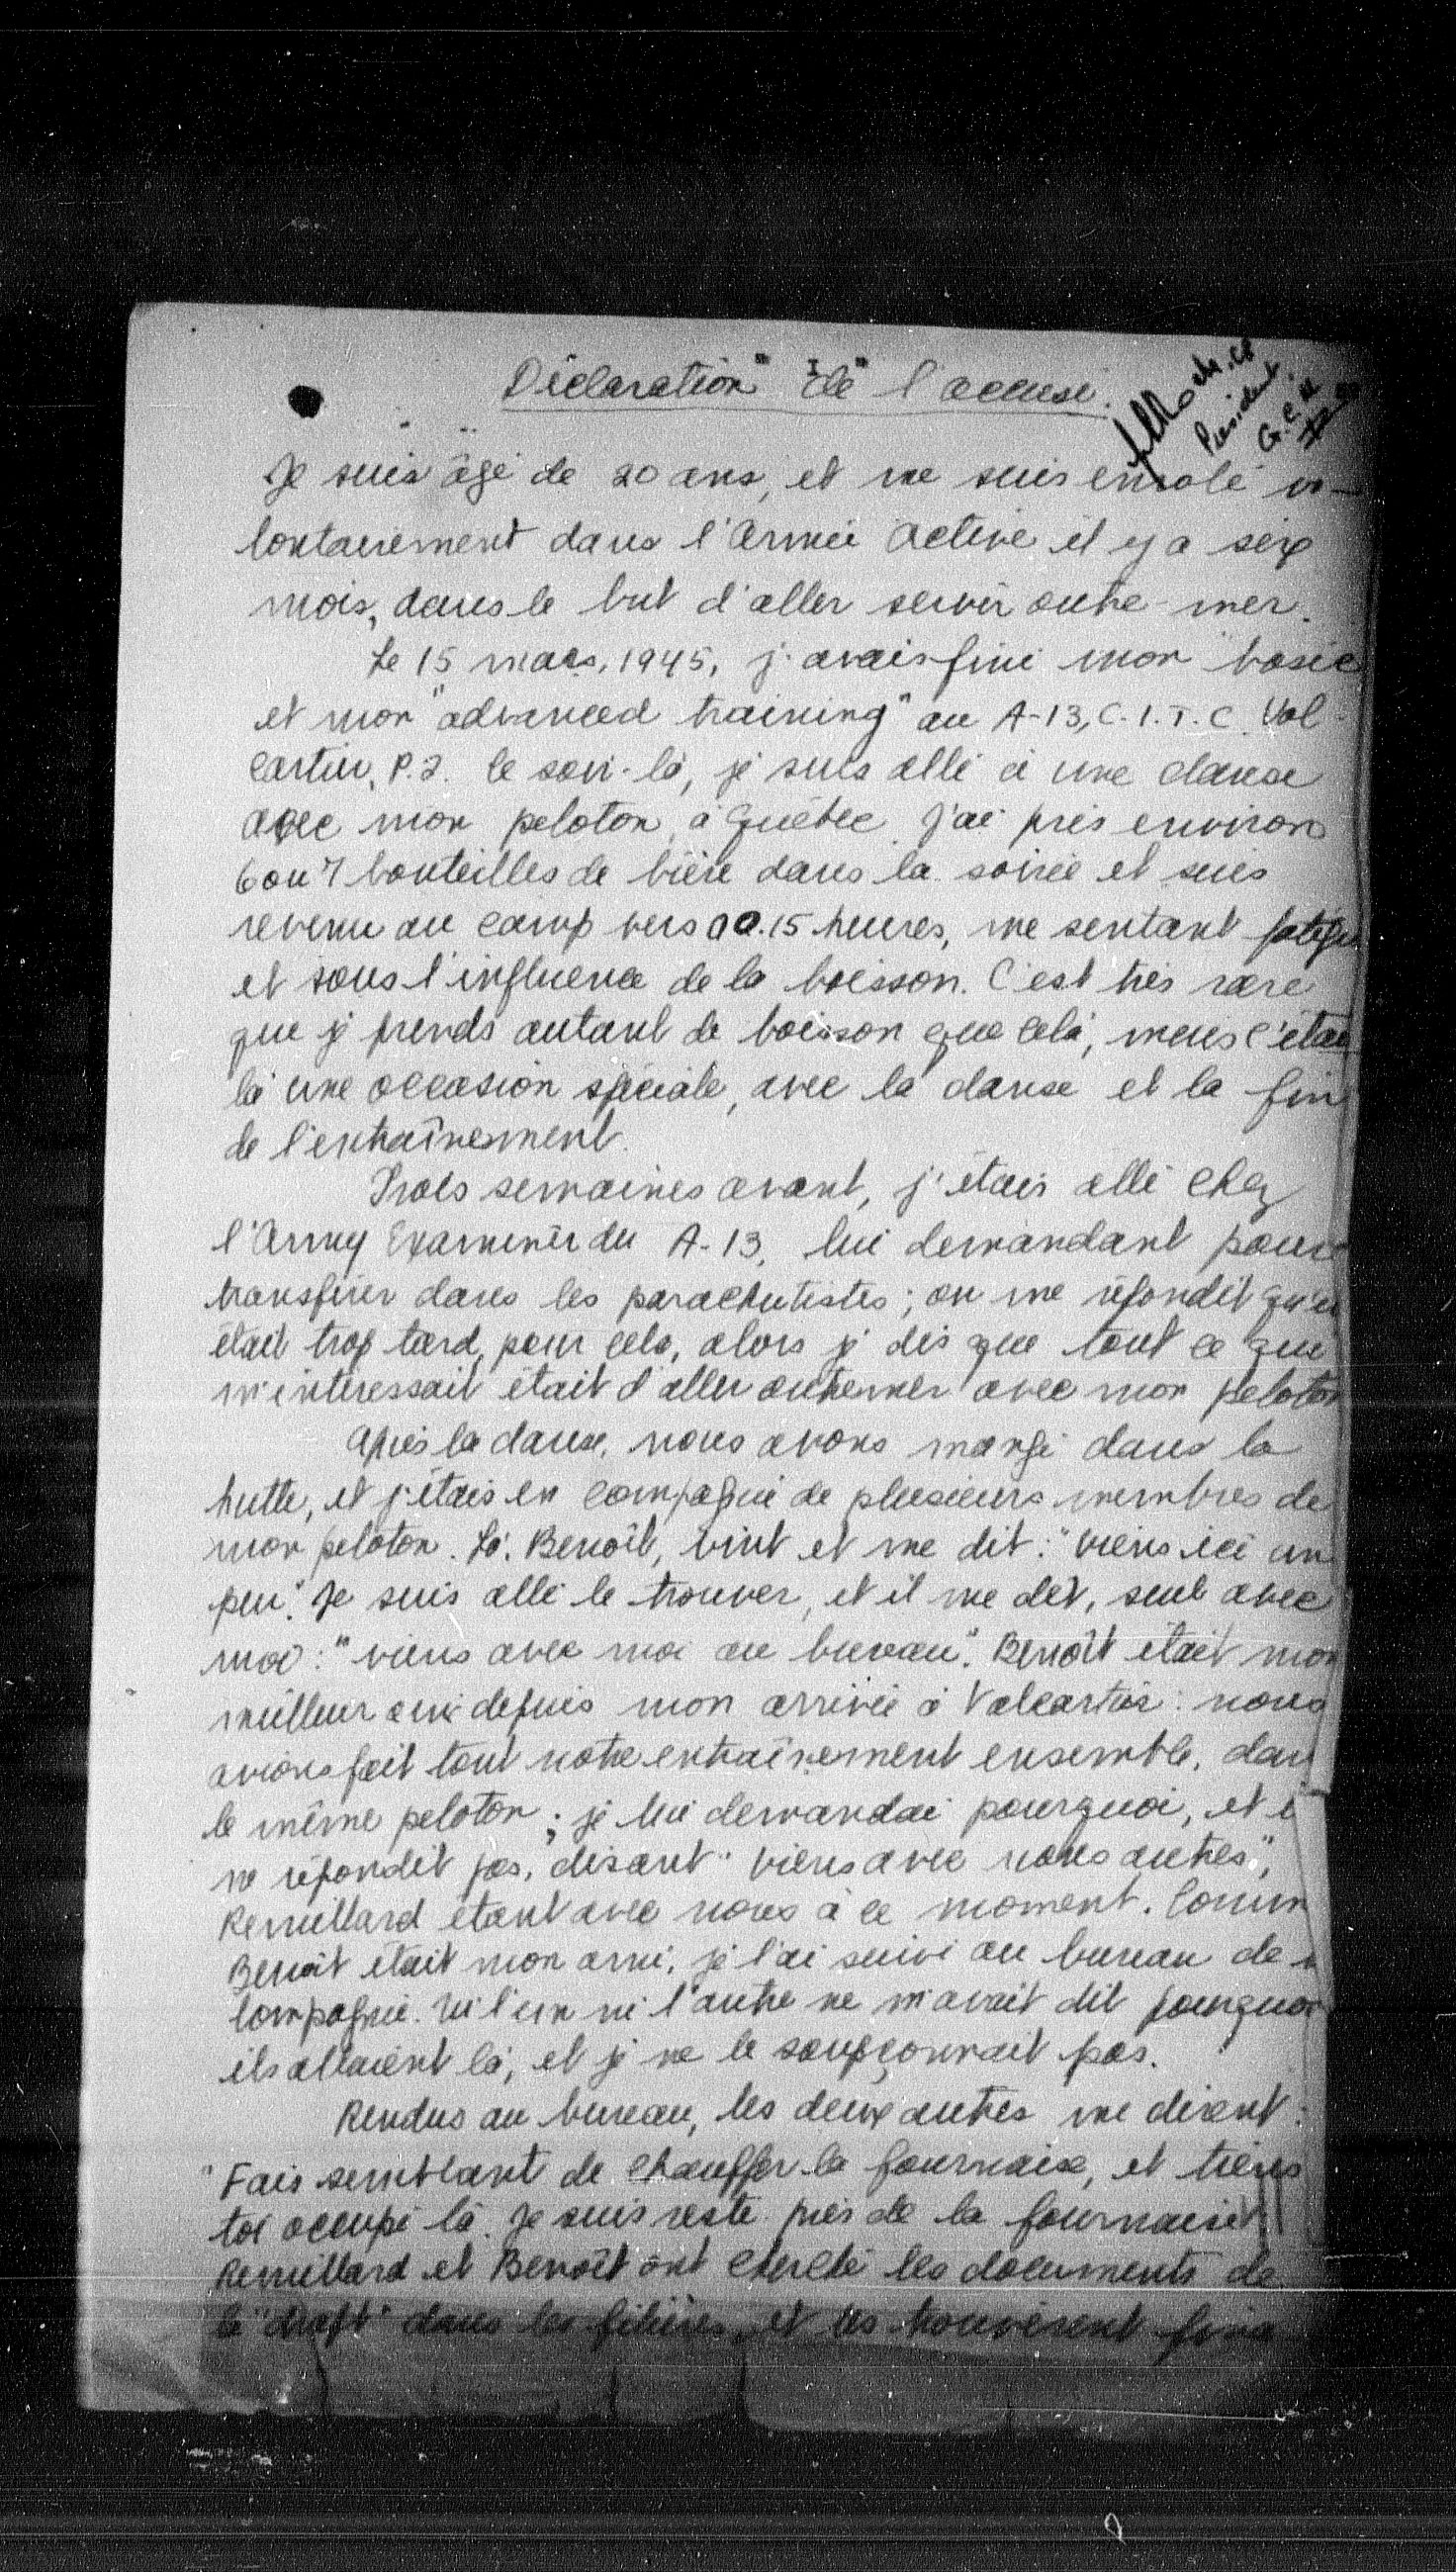 Déclaration de l'accusé.
"I"
President.
G.C.M.
Je suis âgé de 20 ans, et me suis enrolé vo-
lontairement dans l'Armée Active il y a six
mois, dans le but d'aller servir outre-mer.
Le 15 mars, 1945, j'avais fini mon "basic"
et mon "advanced training" au A-13, C.I.T.C. Val-
cartier, P.Q. Ce soir-là, je suis allé à une danse
avec mon peloton, à Québec. J'ai pris environ
6 ou 7 bouteilles de bière dans la soirée et suis
revenu au camp vers 00.15 heures, me sentant fatigu
et sous l'influence de la boisson. C'est très rare
que je prends autant de boisson que cela, mais c'étai
là une occasion spéciale, avec la danse et la fin
de l'entraînement.
Trois semaines avant, j'étais allé chez
l'Army Examiner du A-13, lui demandant pour
transférer dans les parachutistes; on me répondit qu'il
était trop tard pour cela, alors je dis que tout ce que
m'intéressait était d'aller outremer avec mon peloton
Après la danse, nous avons mangé dans la
hutte, et j'étais en compagnie de plusieurs membres de
mon peloton. Là, Benoît, vint et me dit: "viens ici un
peu". Je suis allé le trouver, et il me dit, seul avec
moi: "viens avec moi au bureau". Benoît était mon
meilleur ami depuis mon arrivée à Valcartier: nous
avions fait tout notre entraînement ensemble, dan
le même peloton; je lui demandai pourquoi, et i
ne répondit pas, disant "viens avec nous autres",
Remillard étant avec nous à ce moment. Comm
Benoît était mon ami, je l'ai suivi au bureau de
compagnie. Ni l'un ni l'autre ne m'avait dit pourquoi
ils allaient là, et je ne le soupçonnait pas.
Rendus au bureau, les deux autres me dirent:
"Fais semblant de chauffer la fournaise, et tiens
toi occupé là. Je suis resté près de la fournaise et
Remillard et Benoît ont cherché les documents de
la "draft" dans les filières, et les trouvèrent fina